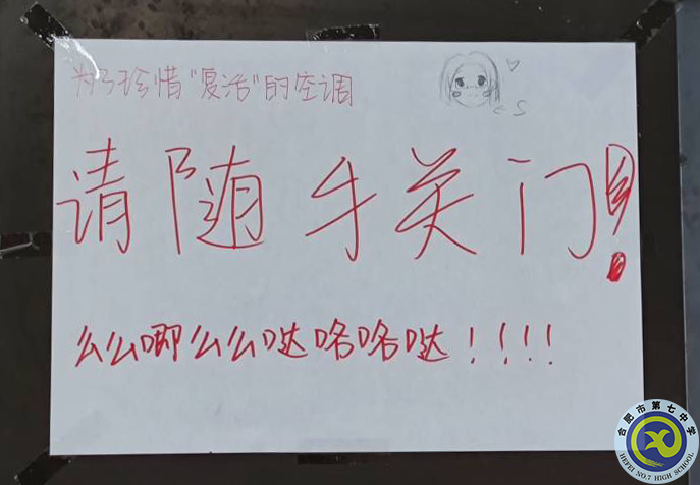 为了珍惜"复活"的空调
请随手关门!
么么唧么么哒咯咯哒!!!!
合肥市第七中学
HEFEI NO.7 HIGH SCHOOL